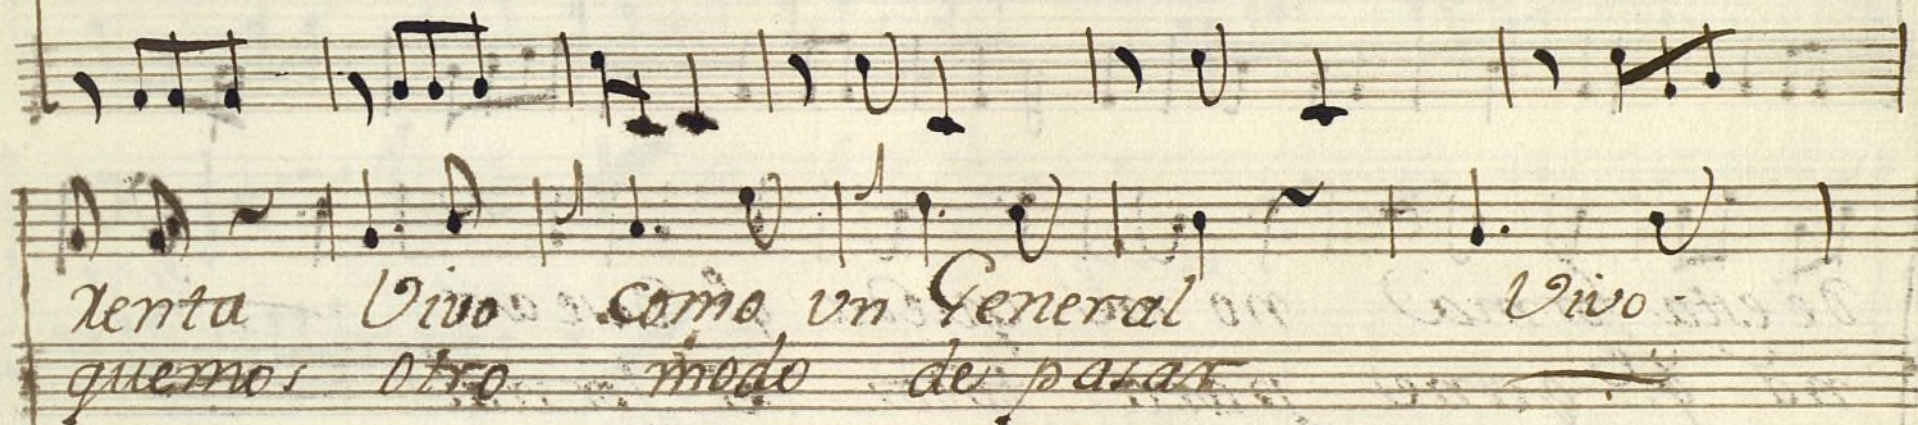 renta Vivo como vn General Vivo
quemos otro modo de pasar